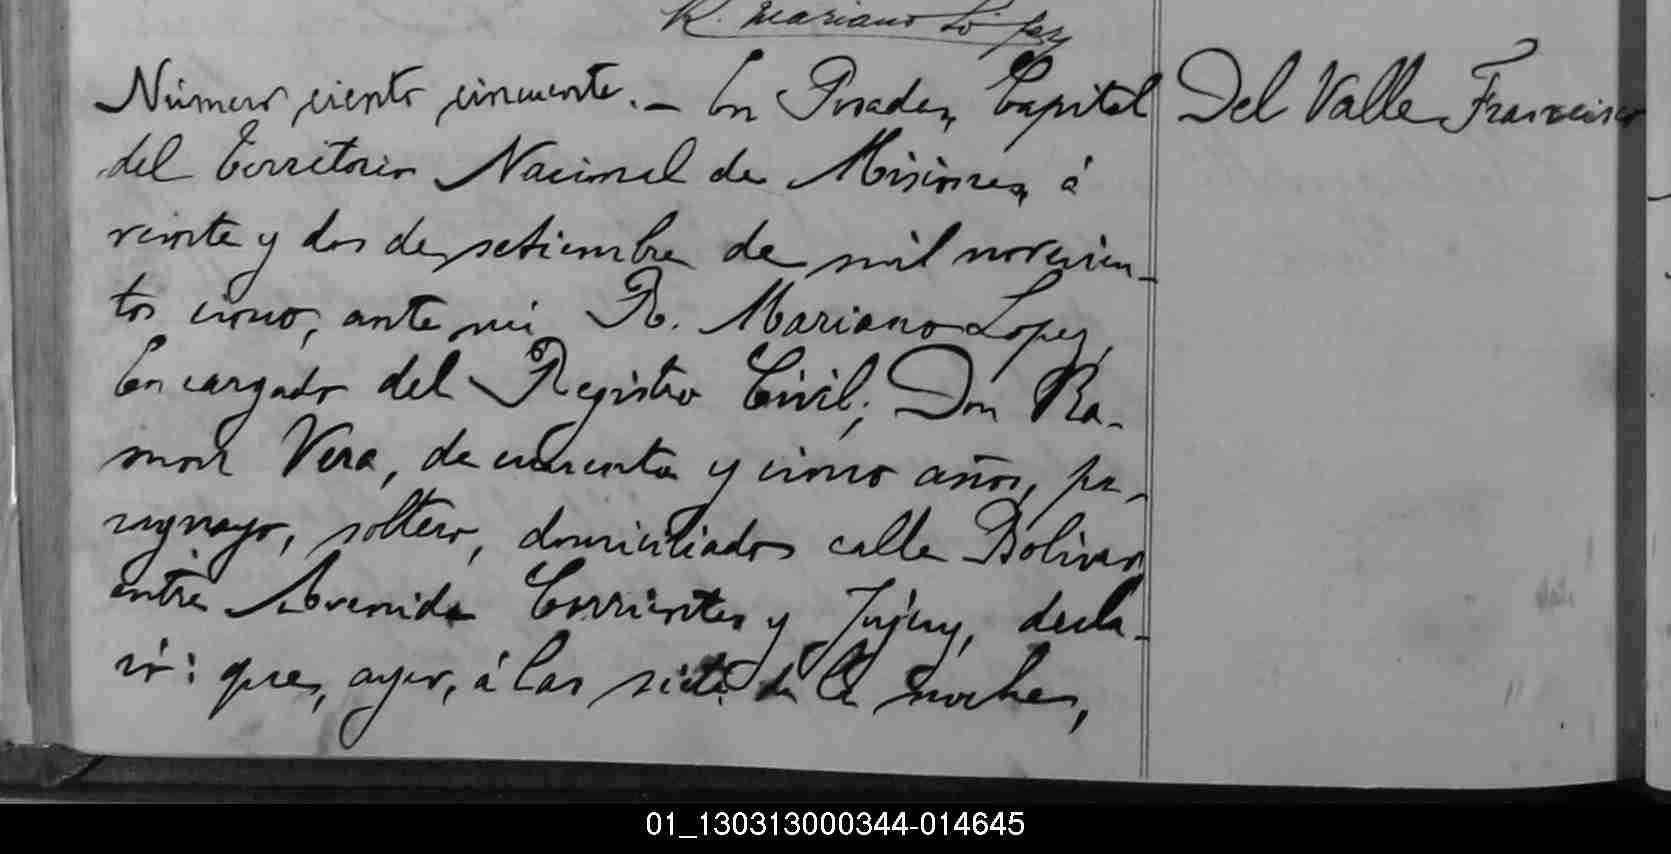 R. Mariano López
Número ciento cincuenta. – En Posadas, Capital
Del Valle Francisco
del Territorio Nacional de Misiones, á
veinte y dos de setiembre de mil novecien-
tos cinco, ante mí R. Mariano Lopez,
Encargado del Registro Civil; Don Ra-
mon Vera, de cuarenta y cinco años, pa-
raguayo, soltero, domiciliado calle Bolivar
entre Avenida Corrientes y Jujuy, decla-
ró: que, ayer, á las siete de la noche,
01_130313000344-014645